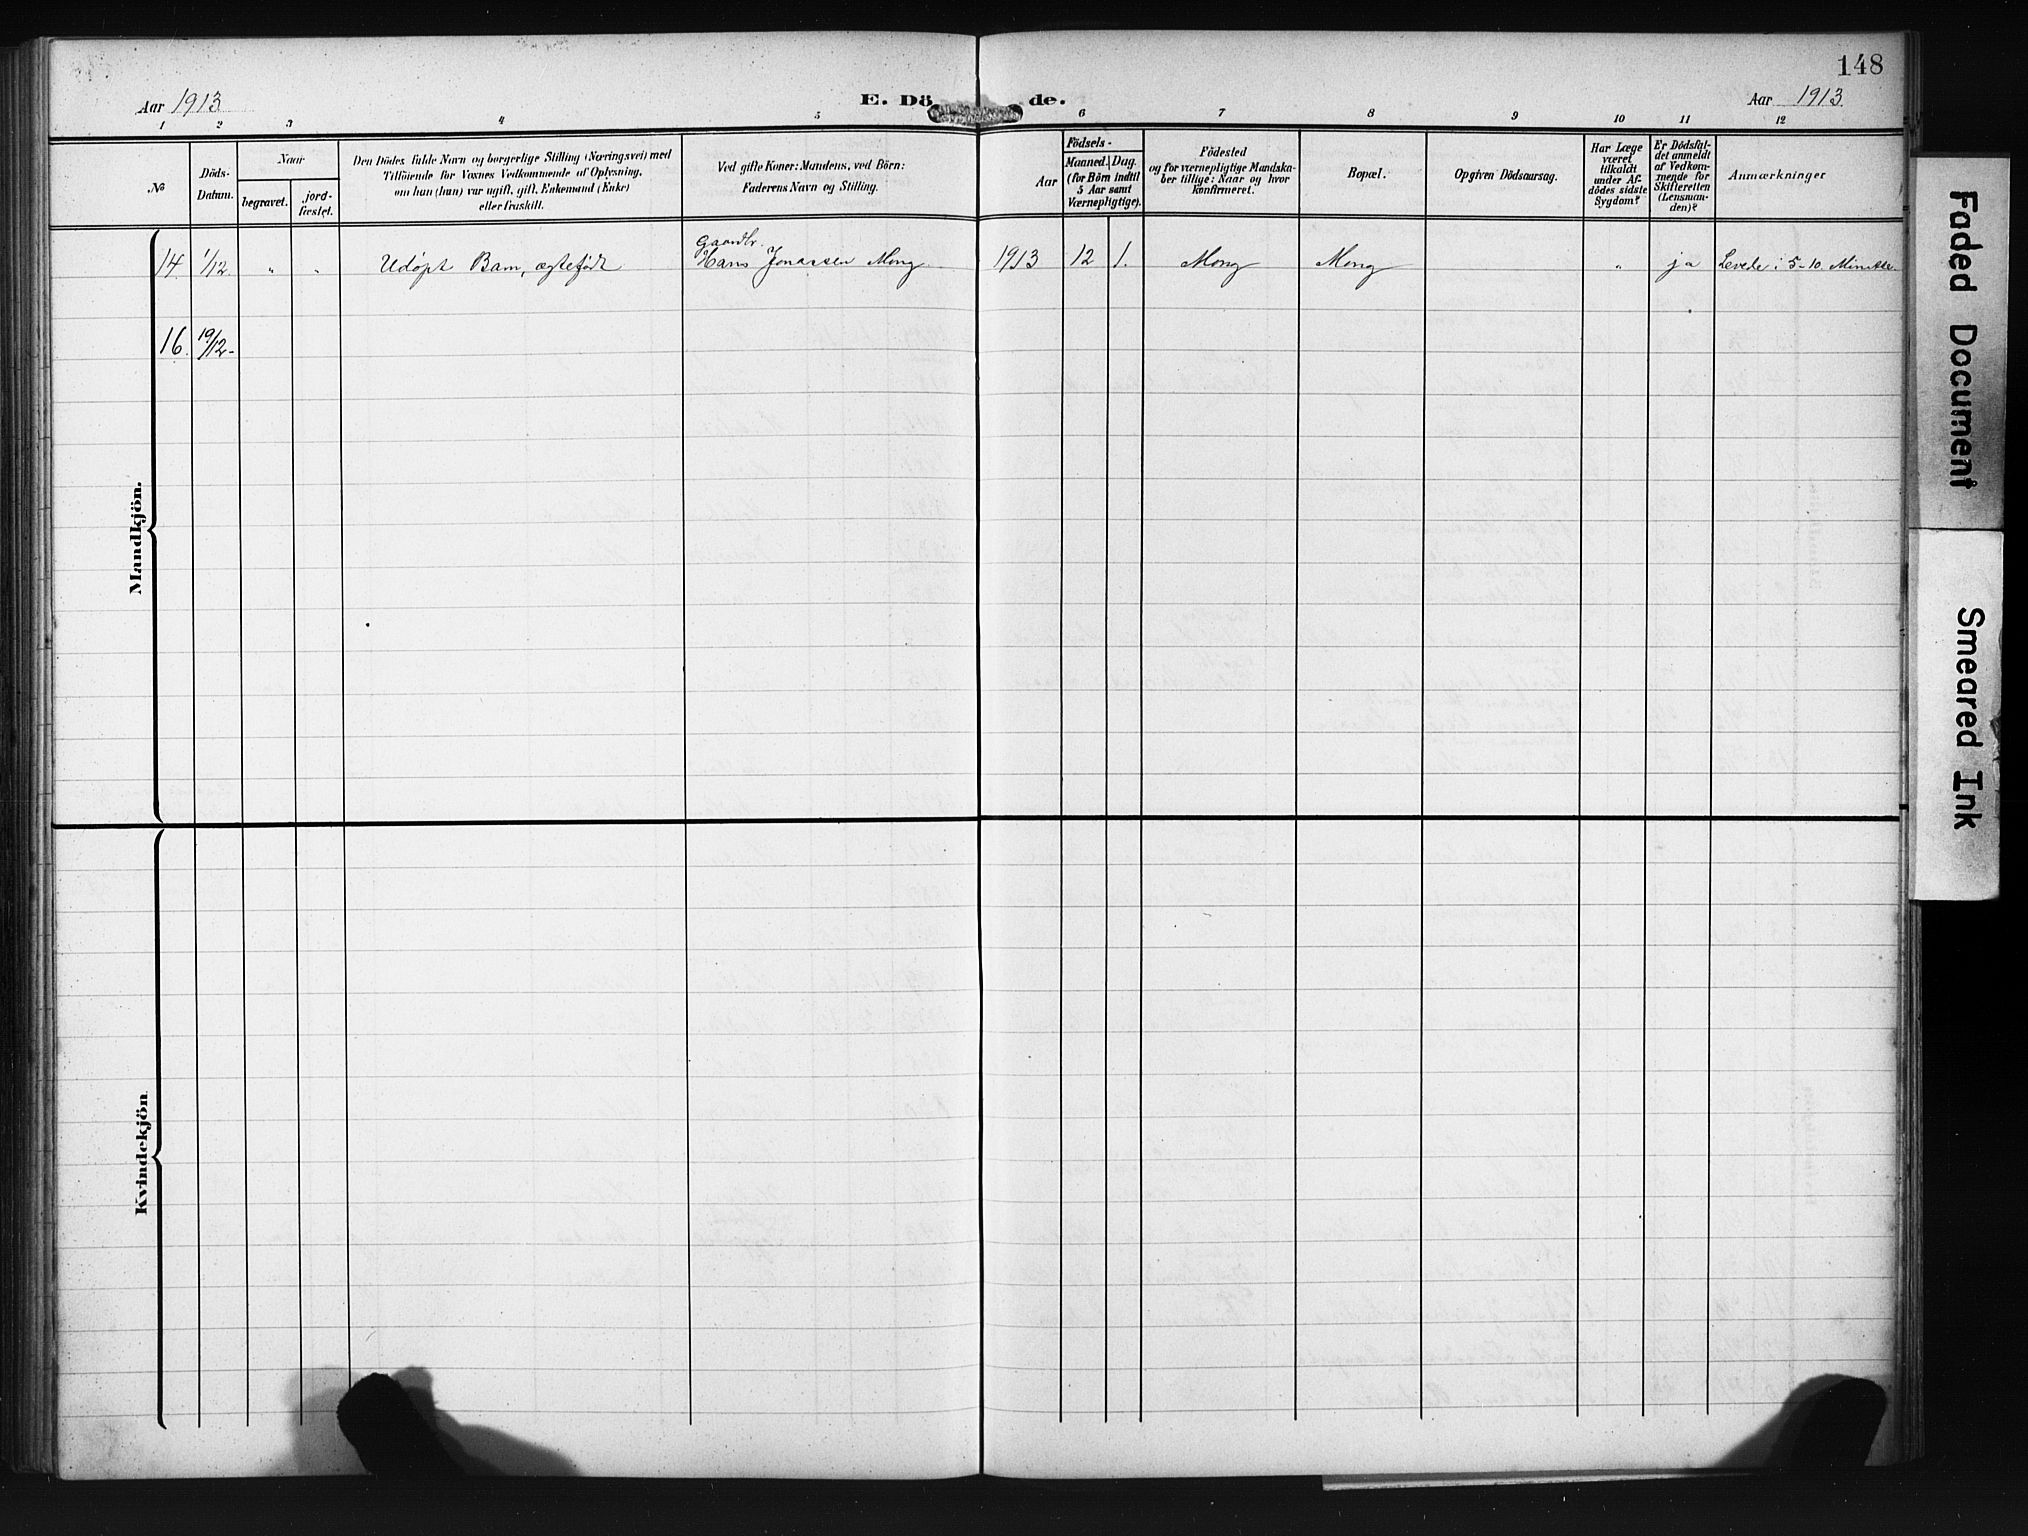 148
Aar 1913
E. Dö de.
Aar 1913
1 2 3 4 5 6 7 8 9 10 11 12
№
Döds-
Datum.
Naar
begravet.
jord-
fæstet.
Den Dödes fulde Navn og borgerlige Stilling (Næringsvei) med
Tilföiende for Voxnes Vedkommende af Oplysning,
om han (hun) var ugift, gift, Enkemand (Enke)
eller fraskilt.
Ved gifte Koner: Mandens, ved Börn:
Faderens Navn og Stilling.
Födsels-
Aar
Maaned. Dag.
(for Börn indtil
5 Aar samt
Værnepligtige).
Födested
og for værnepligtige Mandska-
ber tillige: Naar og hvor
konfirmeret.
Bopæl.
Opgiven Dödsaarsag.
Har Læge
været
tilkaldt
under Af-
dödes sidste
Sygdom?
Er Dödsfal-
det anmeldt
af Vedkom-
mende for
Skifteretten
(Lensman-
den)?
Anmærkninger
Gaardbr.
14. 1/12 " " Udöpt Barn, ægtefödt Hans Jonassen Mong 1913 12 1. Mong Mong " ja Levede i 5-10 Minutter.
16. 19/12-
Mandkjön.
Kvindekjön.
Faded Document
Smeared Ink